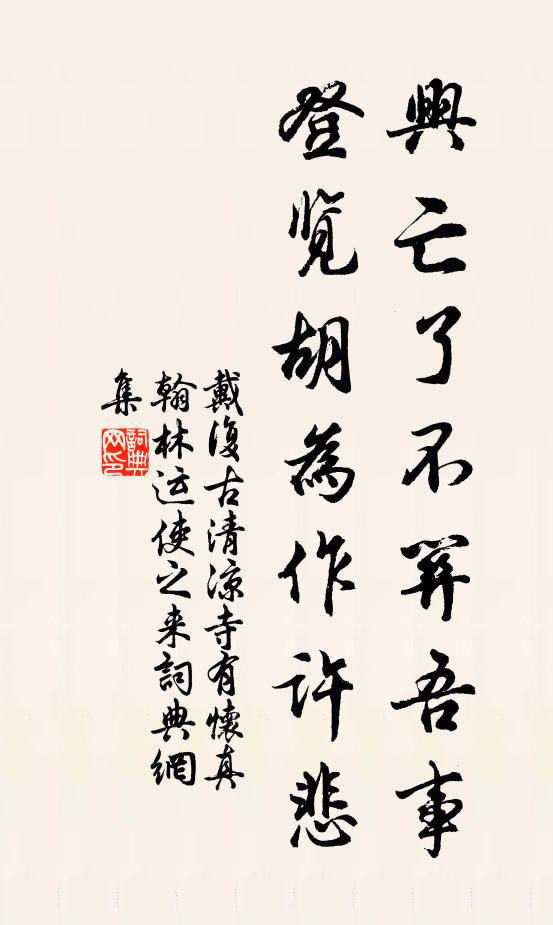 興亡了不關吾事
登覽胡為作許悲
戴復古清涼寺有懷真
翰林運使之来詞典網
集
詞典
网印